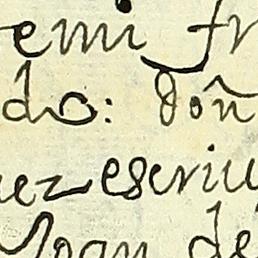 emi fr
do: doñ
uez escriu
Joan de